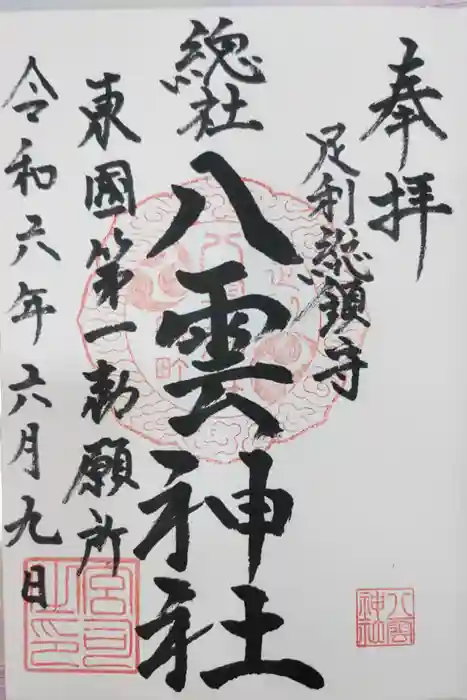 奉拝
足利総鎮守
總社
八雲神社
東國第一勅願所
令和六年六月九日
八雲
神社
宮司
之印